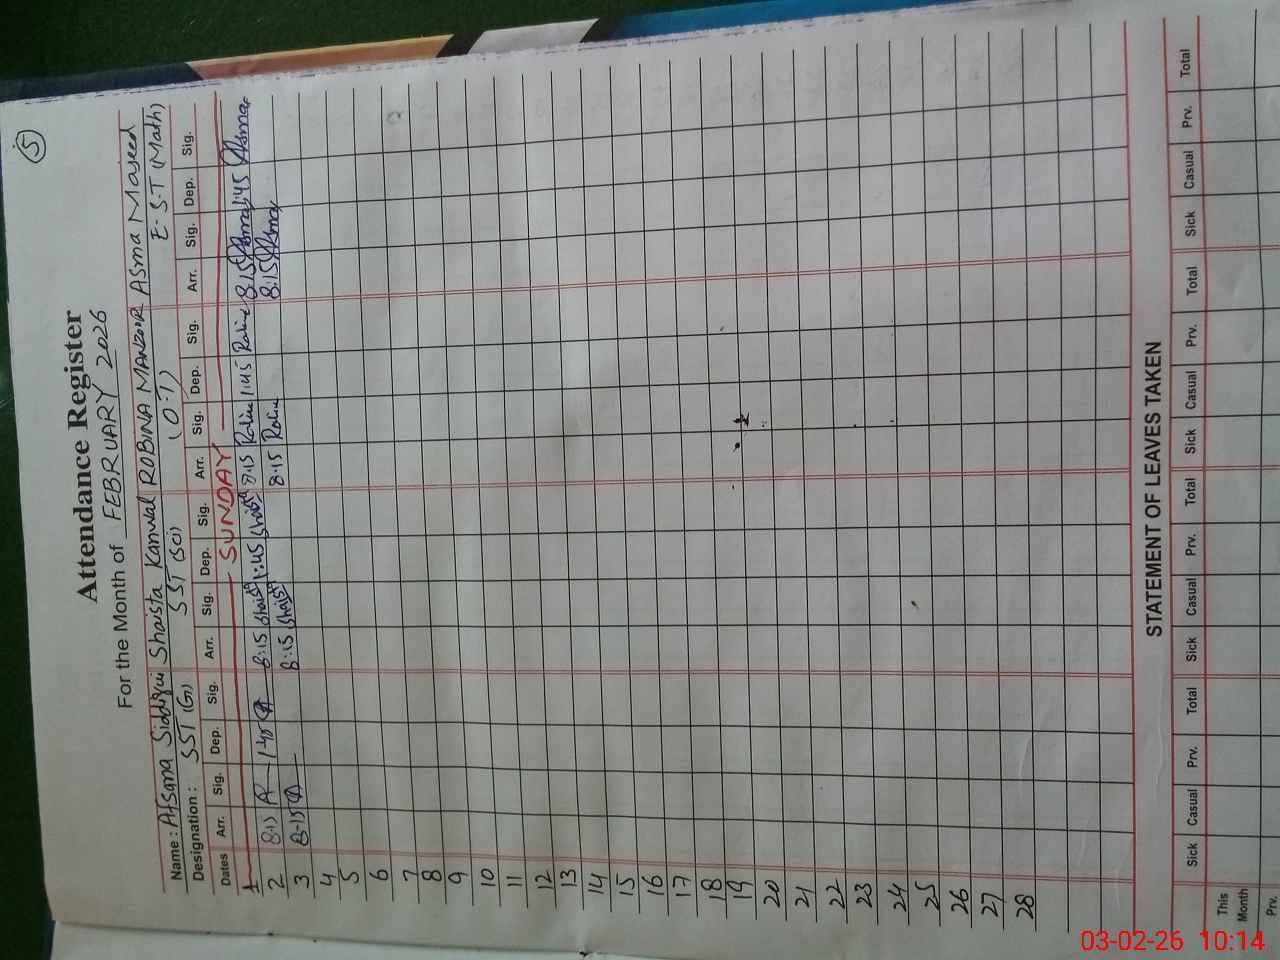 5
Attendance Register
For the Month of FEBRUARY 2026
Name : Afsana Siddiqui Shaista Kanwal ROBINA MANZOOR Asma Majeed
Designation : SST (G) SST (Sci) (O.T) E-S.T (Math)
Dates Arr. Sig. Dep. Sig. Arr. Sig. Dep. Sig. Arr. Sig. Dep. Sig. Arr. Sig. Dep. Sig.
1 SUNDAY
2 8:15 1:45 8:15 Shaista 1:45 Shaista 8:15 Robina 1:45 Robina 8:15 Asma 1:45 Asma
3 8:15 8:15 Shaista 8:15 Robina 8:15 Asma
4
5
6
7
8
9
10
11
12
13
14
15
16
17
18
19
20
21
22
23
24
25
26
27
28
STATEMENT OF LEAVES TAKEN
Sick Casual Prv. Total Sick Casual Prv. Total Sick Casual Prv. Total Sick Casual Prv. Total
This Month
Prv.
03-02-26 10:14